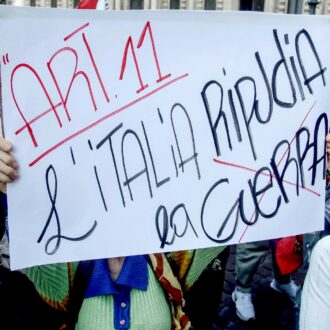 "ART. 11
L'ITALIA RIPUDIA
la GUERRA